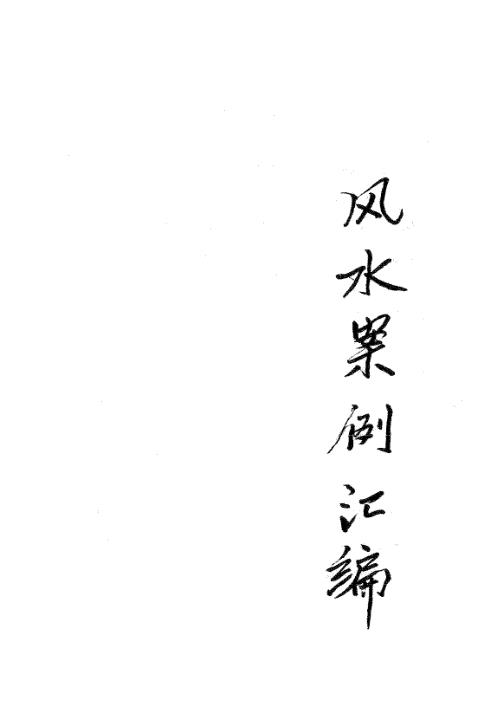 风水案例汇编